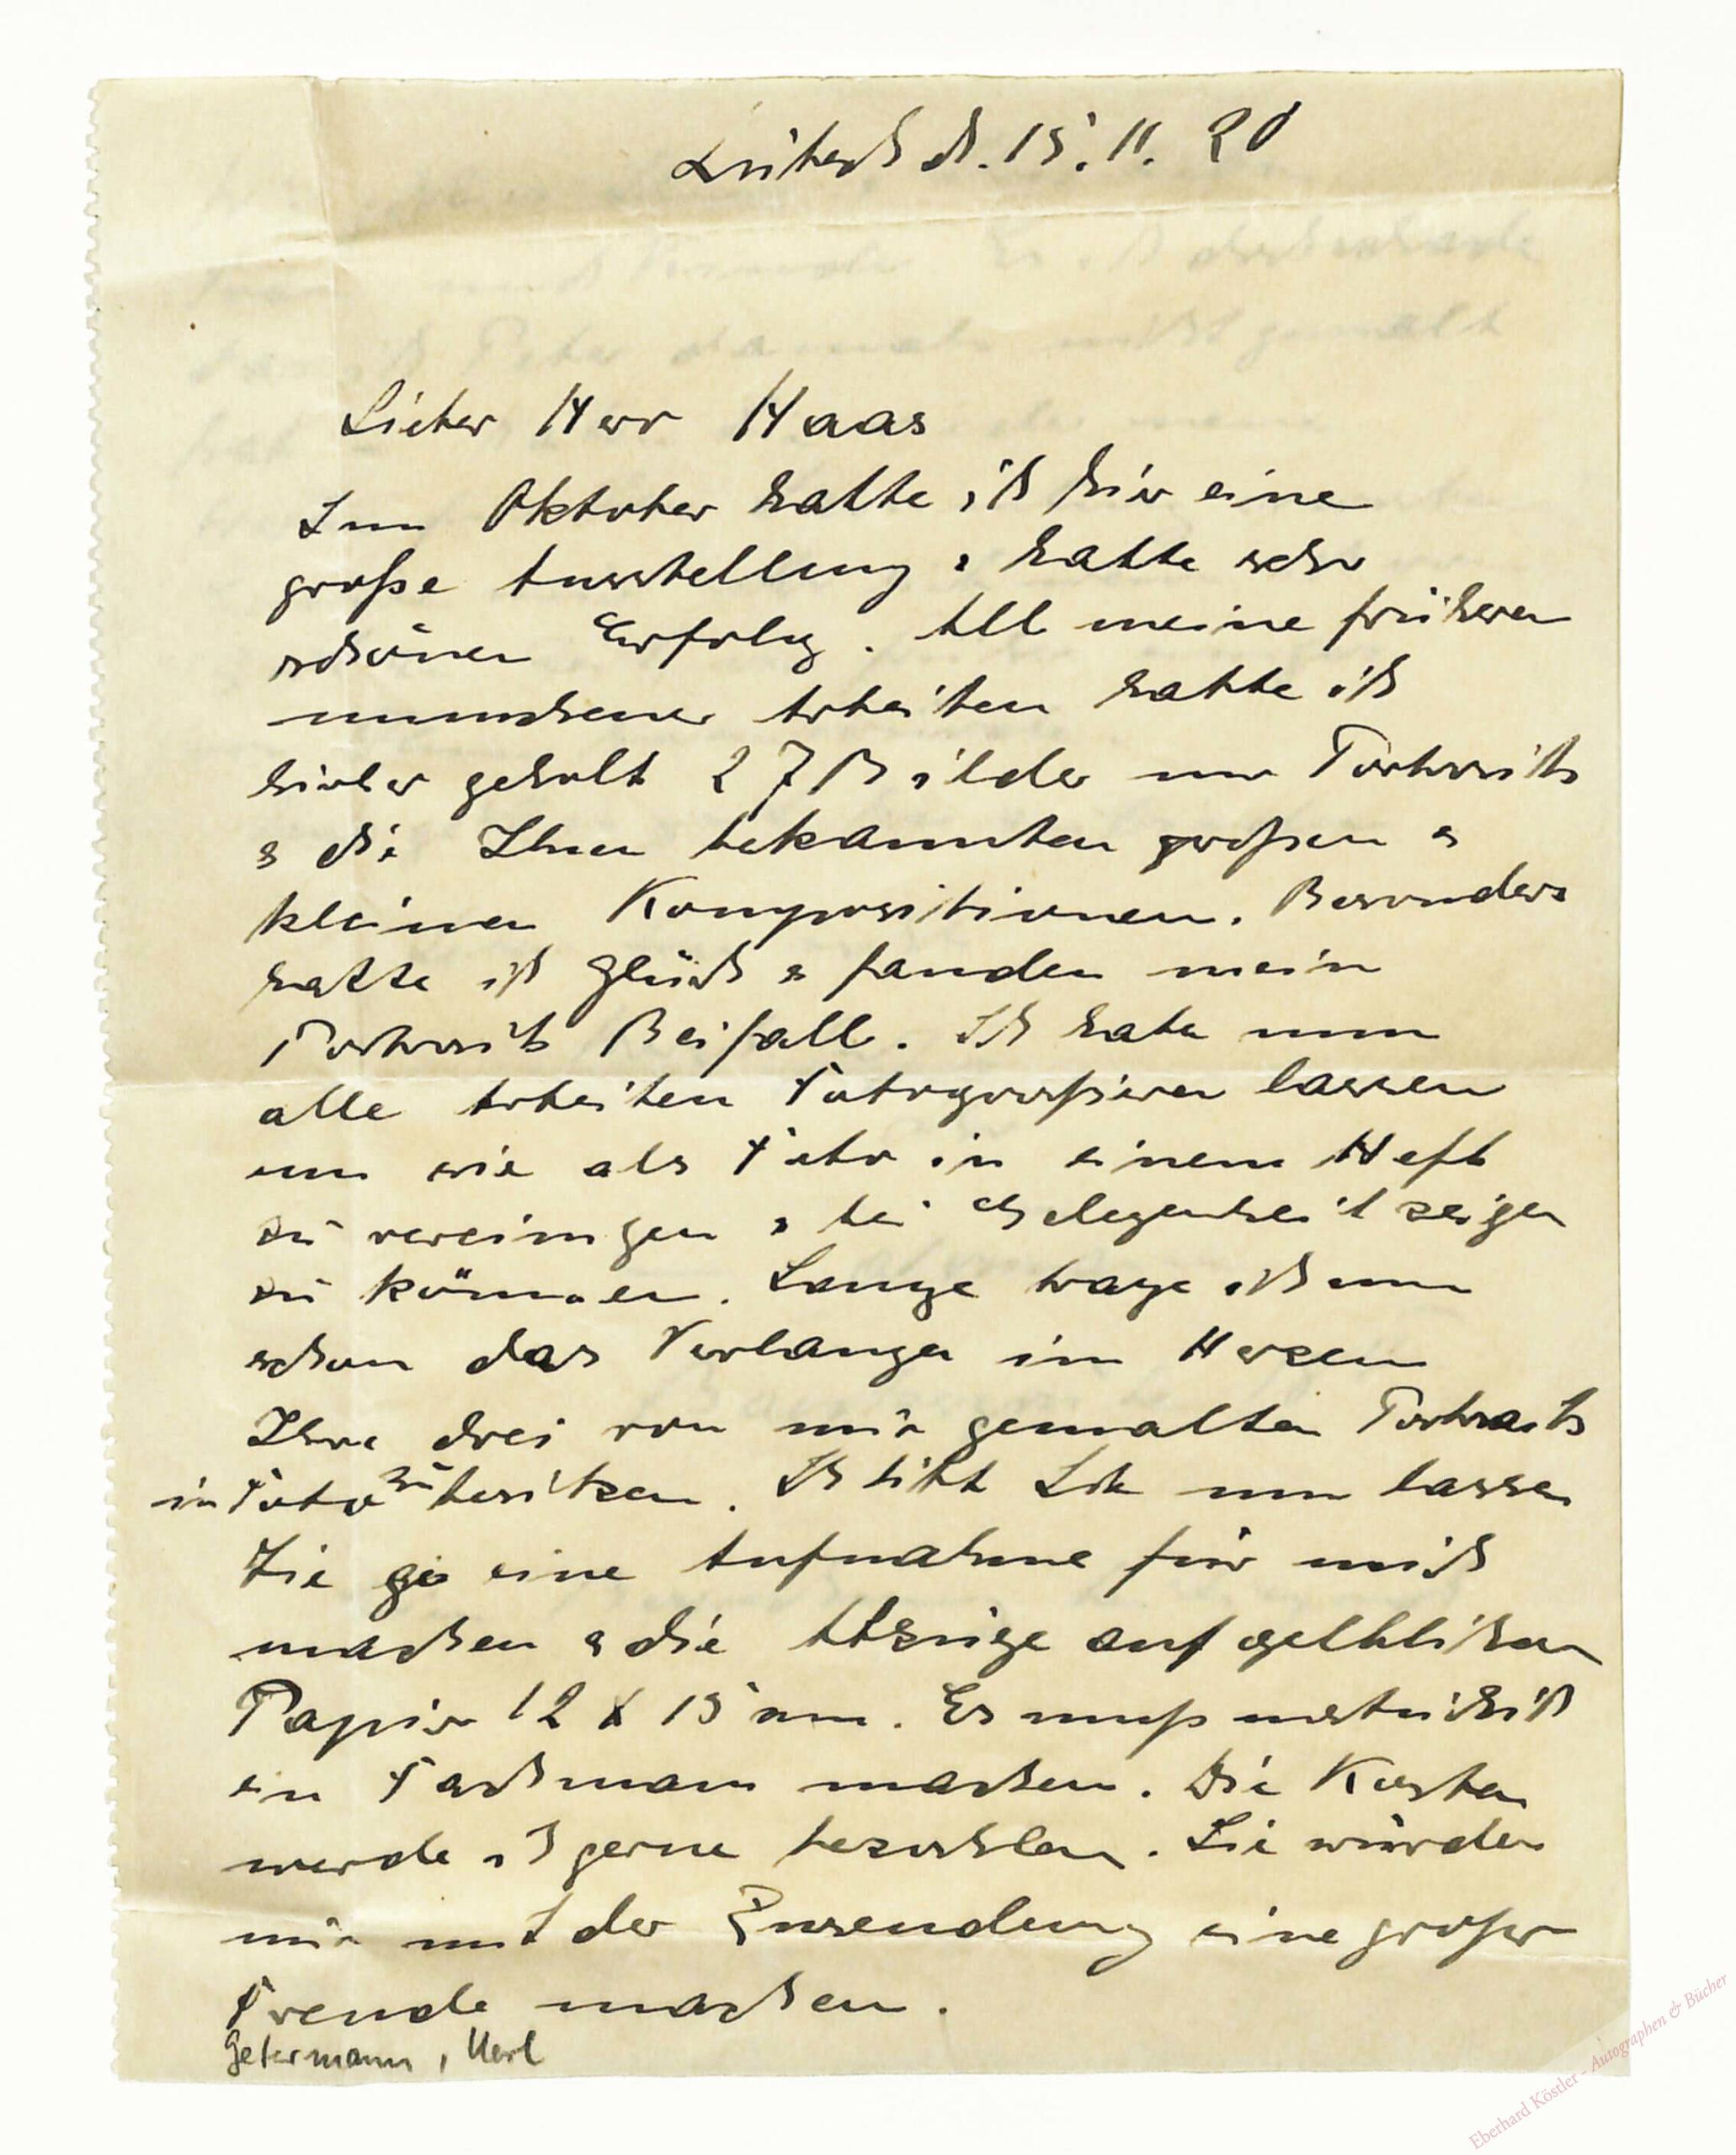 Lübeck d. 15. 11. 20
Lieber Herr Haas
Im Oktober hatte ich hier eine
große Ausstellung & hatte sehr
schönen Erfolg. All meine früheren
münchener Arbeiten hatte ich
hierher geholt 27 Bilder nur Portraits
& die Ihnen bekannten großen &
kleinen Kompositionen. Besonders
hatte ich Glück & fanden mein
Portraits Beifall. Ich habe nun
alle Arbeiten Fotografieren lassen
um sie als Foto in einem Heft
zu vereinigen & bei Gelegenheit zeigen
zu können. Lange trage ich nun
schon das Verlangen im Herzen
Ihre drei von mir gemalten Portraits
in Foto zu besitzen. Ich bitte Sie nun lassen
Sie je eine Aufnahme für mich
machen & die Abzüge auf gelblichen
Papier 12 x 15 cm. Es muß natürlich
ein Fachmann machen. Die Kosten
werde ich gerne bezahlen. Sie würden
mir mit der Zusendung eine großer
Freude machen.
Getermann, Karl
Eberhard Köstler - Autographen & Bücher